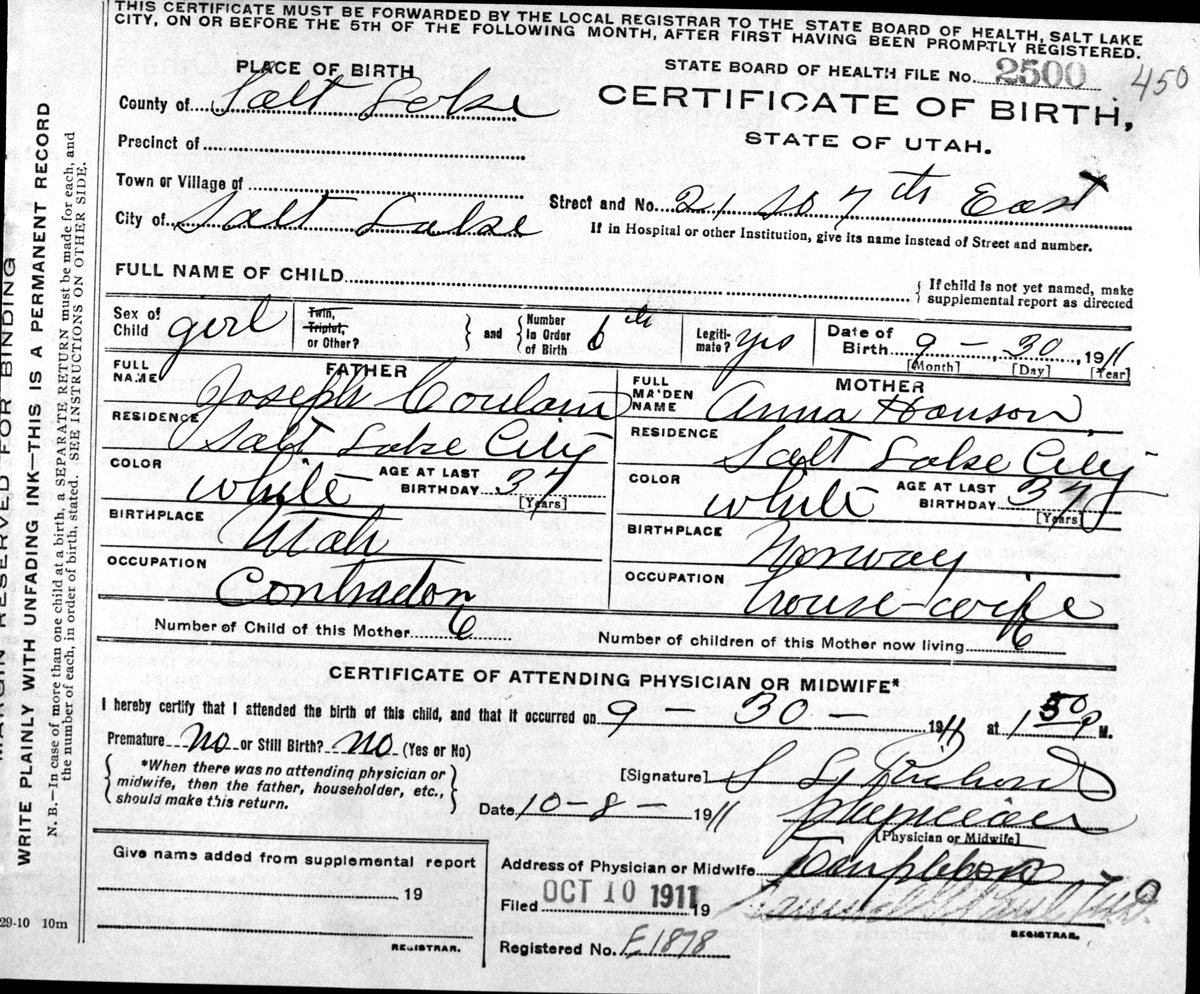 THIS CERTIFICATE MUST BE FORWARDED BY THE LOCAL REGISTRAR TO THE STATE BOARD OF HEALTH, SALT LAKE
CITY, ON OR BEFORE THE 5TH OF THE FOLLOWING MONTH, AFTER FIRST HAVING BEEN PROMPTLY REGISTERED.
PLACE OF BIRTH
STATE BOARD OF HEALTH FILE No. 2500 450
County of Salt Lake
CERTIFICATE OF BIRTH,
STATE OF UTAH.
Precinct of
Town or Village of
City of Salt Lake
Street and No. 21 So 7th East
If in Hospital or other Institution, give its name instead of Street and number.
FULL NAME OF CHILD
If child is not yet named, make
supplemental report as directed
Sex of Child girl Twin, Triplet, or Other? and Number In Order of Birth 6th Legiti-mate? yes Date of Birth 9 - 30, 1911
[Month] [Day] [Year]
FATHER
FULL NAME Joseph Coulam
RESIDENCE Salt Lake City
COLOR white AGE AT LAST BIRTHDAY 37
[Years]
BIRTHPLACE Utah
OCCUPATION Contractor
MOTHER
FULL MAIDEN NAME Anna Hanson
RESIDENCE Salt Lake City
COLOR white AGE AT LAST BIRTHDAY 37
[Years]
BIRTHPLACE Norway
OCCUPATION house-wife
Number of Child of this Mother 6 Number of children of this Mother now living 6
CERTIFICATE OF ATTENDING PHYSICIAN OR MIDWIFE*
I hereby certify that I attended the birth of this child, and that it occurred on 9 30 - 1911 at 1 50 P M.
Premature No or Still Birth? No (Yes or No)
*When there was no attending physician or
midwife, then the father, householder, etc.,
should make this return.
[Signature]
Date 10-8- 1911 physician
[Physician or Midwife]
Give name added from supplemental report
19
REGISTRAR.
Address of Physician or Midwife Templeton
Filed OCT 10 1911 19
REGISTRAR.
Registered No. E1878
MARGIN RESERVED FOR BINDING
WRITE PLAINLY WITH UNFADING INK—THIS IS A PERMANENT RECORD
N. B.—In case of more than one child at a birth, a SEPARATE RETURN must be made for each, and
the number of each, in order of birth, stated. SEE INSTRUCTIONS ON OTHER SIDE.
29-10 10m